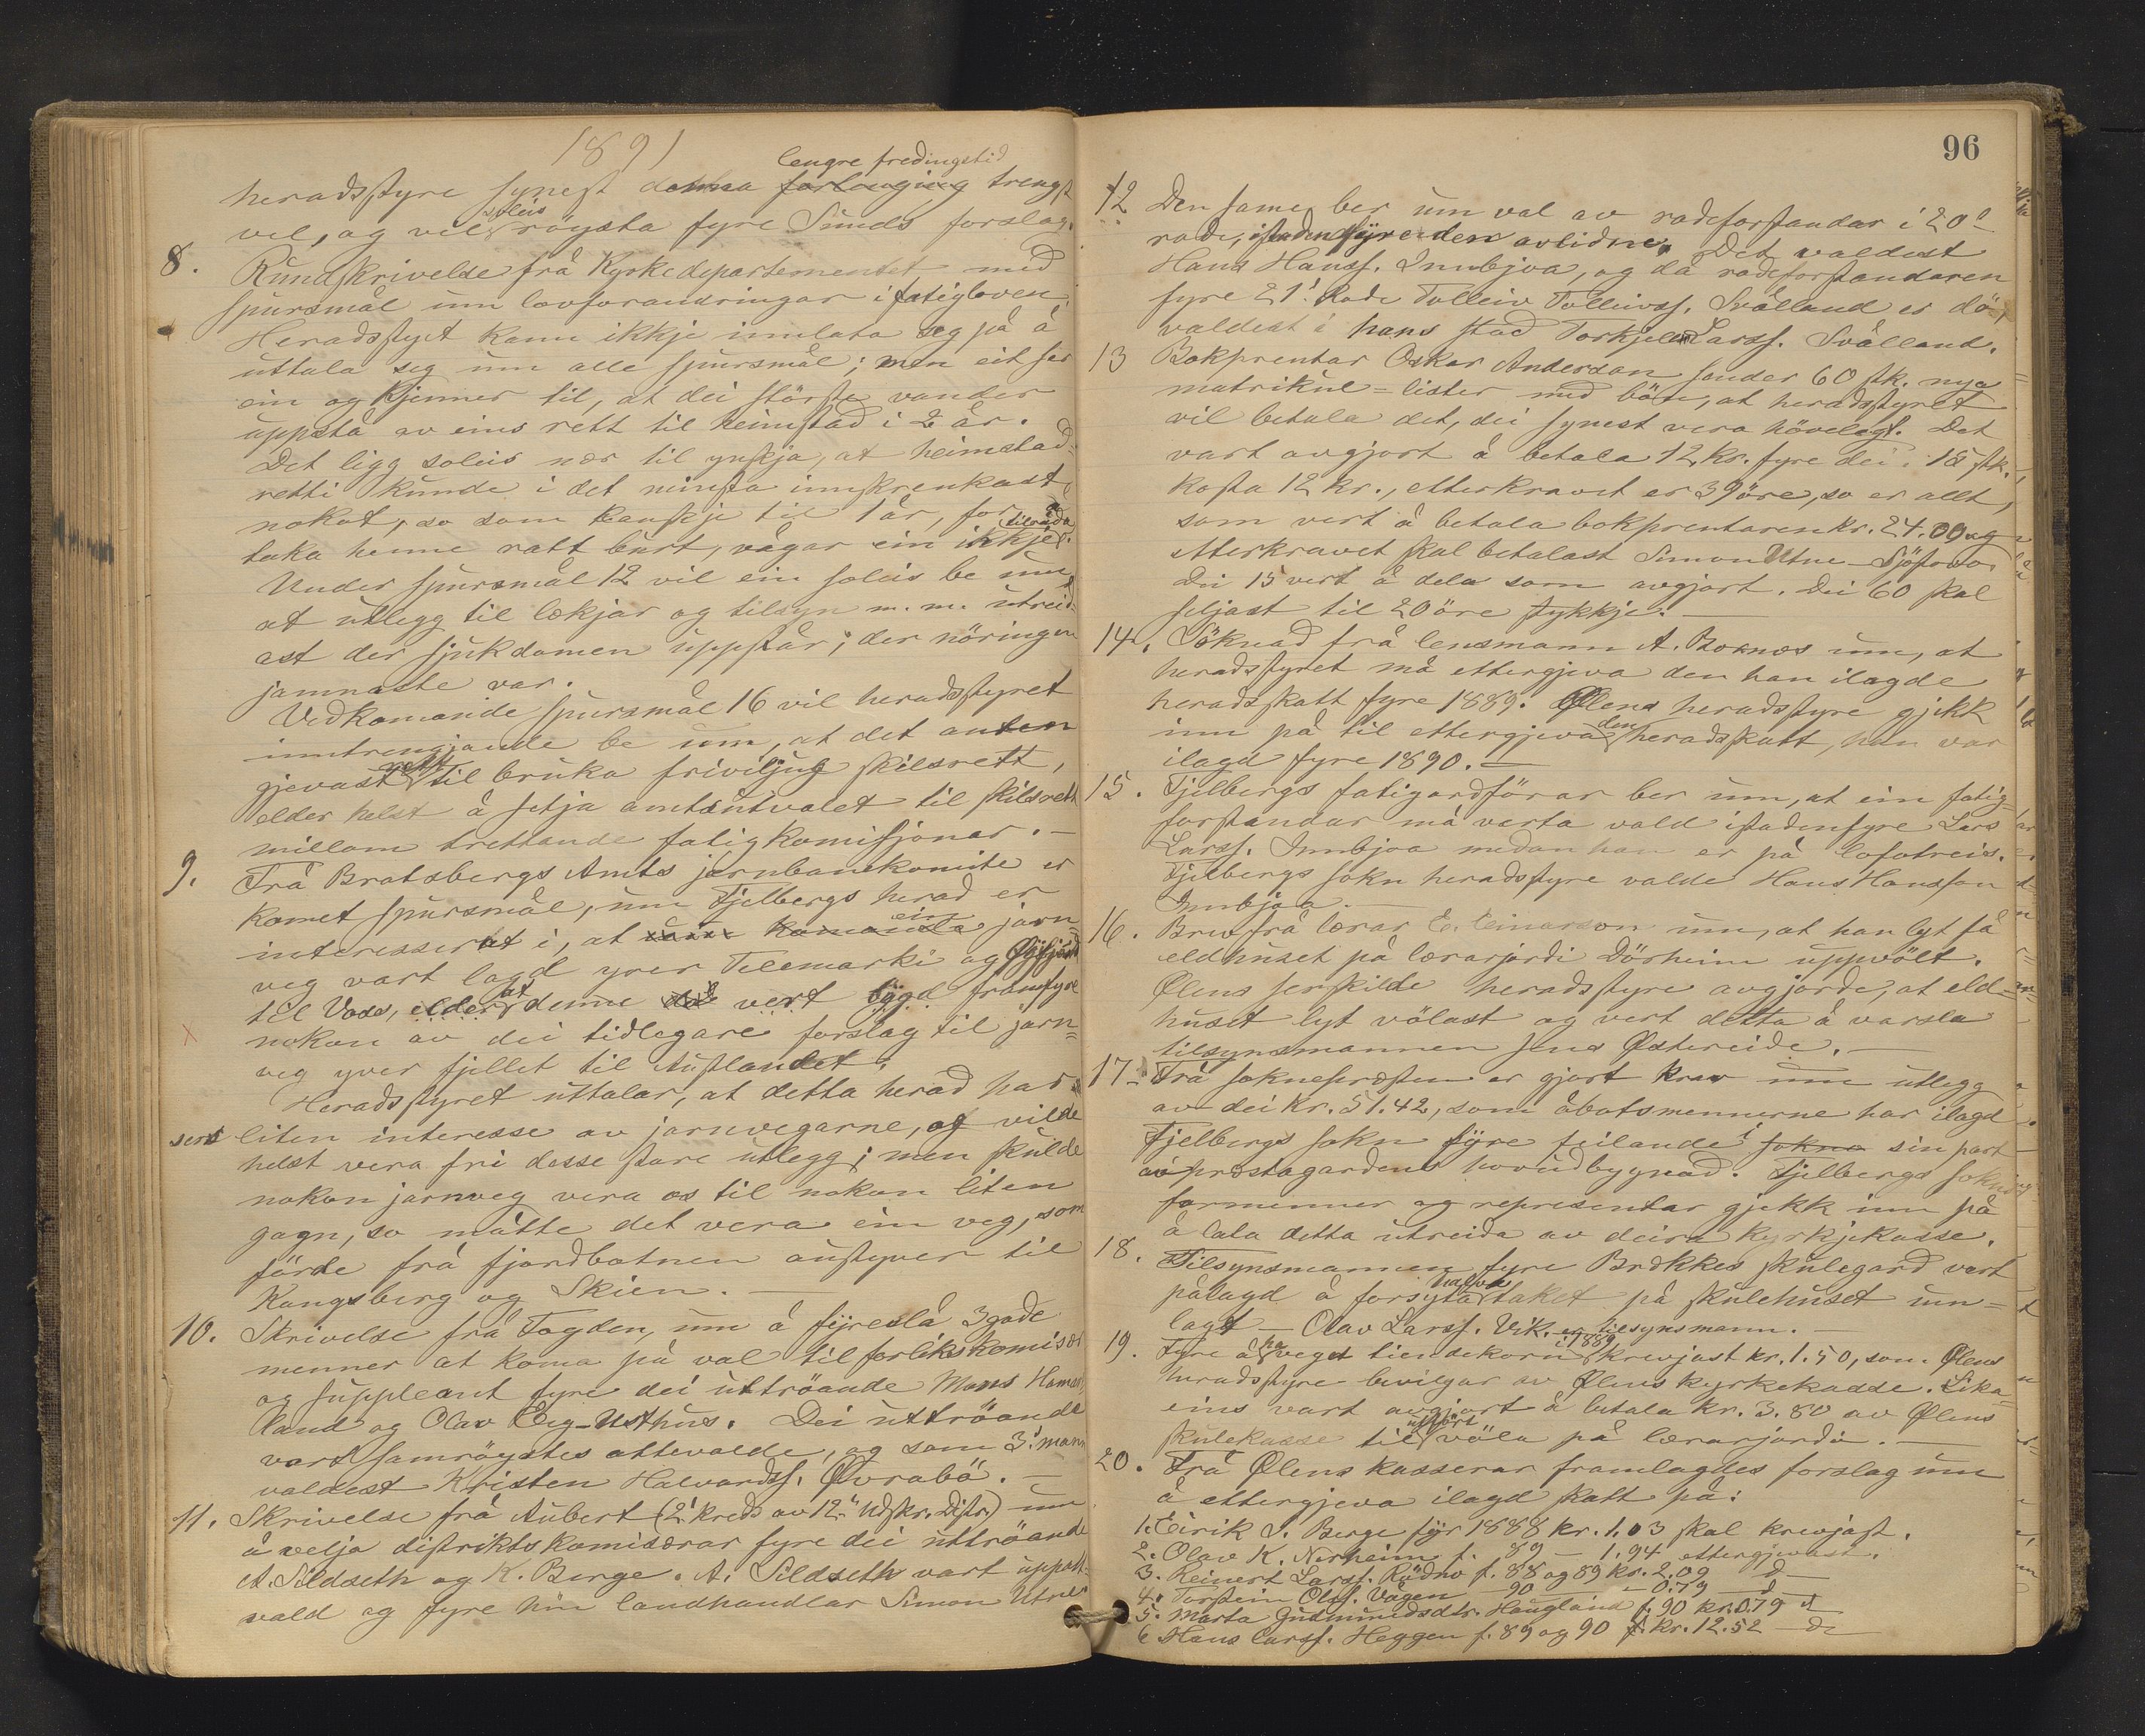 1891
lengre fredingstid
heradsstyre synest denna forlenging trengst
vel, og vil soleis röysta fyre Sunds forslag.
8. Rundskrivelde frå Kyrkedepartementet med
spursmål um lovforandringar i fatigloven.
Heradsstyret kann ikkje innlata seg på å
uttala seg um alle spursmål; men eit ser
ein og kjenner til, at dei störste vander
uppstå av eins rett til heimstad i 2 år.
Det ligg soleis nær til ynskja, at heimstad-
retti kunde i det minsta innskrenkast
nokot, so som kanskje til 1 år, for å
taka henne ratt burt, vågar ein ikkje tilråda.
Under spursmål 12 vil ein soleis be um
at utlegg til lækjar og tilsyn m. m. utreid-
ast der sjukdomen uppstår; der nöringen
jamnaste var.
Vedkomande spursmål 16 vil heradsstyret
inntrengjande be um, at det anten
gjevast rett til bruka friviljug skilsrett,
elder helst å setja amtsutvalet til skilsrett
millom trettande fatigkomissjonar.—
9. Frå Bratsbergs Amts jernbanekomite er
komet spursmål, um Fjelbergs herad er
interesserat i, at ein jarn-
veg vart lagd yver Telemarki og
til Voss, elder at denne vert bygd framfyre
nokon av dei tidlegare forslag til jarn=
veg yver fjellet til Austlandet.
Heradsstyret uttalar, at detta herad har
sers liten interesse av jarnvegarne, og vilde
helst vera fri desse store utlegg; men skulde
nokon jarnveg vera os til nokon liten
gagn, so måtte det vera ein veg, som
förde frå fjordbotnen austyver til
Kongsberg og Skien.—
10. Skrivelse frå Fogden, um å fyreslå 3 gode
menner at koma på val til forlikskomisær
og suppleant fyre dei uttröande Mons Hamas-
land og Olav Eig-Usthus. Dei uttröande
vart samröystes attevalde, og som 3. mann
valdest Kristen Halvardss. Øvrabö.—
11. Skrivelse frå Aubert (2. kreds av 12. Udskr. Distr.) um
å velja distriktskomisærar fyre dei uttröande
A. Sildseth og K. Berge. A. Sildseth vart uppatt-
vald og fyre hin landhandlar Simon Utne
96
12 Den same ber um val av rodeforstandar i 20de
rode, istadenfyre den avlidne. Det valdest
Hans Hanss. Innbjoa, og då rodeforstandaren
fyre 21. Rode Tolleiv Tolleivss. Svålland er dö,
valdest i hans stad Torkjell Larss. Svålland.
13 Bokprentar Oskar Anderson sender 60 stk. nya
matrikul=lister med bön, at heradsstyret
vil betala det, dei synest vera hövelegt. Det
vart avgjort å betala 12 kr. fyre dei. 15 stk.
kosta 12 kr., etterkravet er 39 öre, so er allt,
som vert å betala bokprentaren kr. 24.00 og
etterkravet skal betalast Simon Utne
Dei 15 vert å dela som avgjort. Dei 60 skal
seljast til 20 öre stykkje.—
14. Söknad frå lensmann A. Boknæs um, at
heradsstyret må ettergjeva den han ilagde
heradsskatt fyre 1889. Ølens heradsstyre gjekk
inn på til ettergjeva den heradsskatt, han var
ilagd fyre 1890.—
15. Fjelbergs fatigordförar ber um, at ein fatig-
forstandar må verta vald istadenfyre Lars
Larss. Innbjoa medan han er på lofotreis.
Fjelbergs sokn heradsstyre valde Hans Hansson
Innbjoa.—
16. Brev frå lærar E. Einarson um, at han lyt få
eldhuset på lærarjordi Dörheim uppvölt.
Ølens serskilde heradsstyre avgjorde, at eld-
huset lyt völast og vert detta å varsla
tilsynsmannen Jens Østereide.—
17. Frå sokneprosten er gjort krav um utlegg
av dei kr. 51.42, som åbotsmennerne har ilagd
Fjelbergs sokn fyre feilande i sokna sin part
av prostagardens hovudbygnad. Fjelbergs sokns
formenner og representar gjekk inn på
å lata detta utreida av deira kyrkjekasse.
18. Tilsynsmannen fyre Brekkes skulegard vert
pålagd å forsyta halva taket på skulehuset um-
lagt — Olav Larss. Vik. er tilsynsmann.—
19. Fyre å ha veget tiendekorn i 1889 krevjast kr. 1.50, som Ølens
heradsstyre bevilgar av Ølens kyrkekasse. Lika-
eins vart avgjort å betala kr. 3.80 av Ølens
skulekasse til utfört völa på lærarjordi.—
20. Frå Ølens kasserar framlagdes forslag um
å ettergjeva ilagd skatt på:
1. Eirik S. Berge fyr 1888 kr. 1.03 skal krevjast.
2. Olav K. Nerheim f. 89 — 1.94 ettergjevast.
3. Reinert Larss. Rödne f. 88 og 89 kr. 2.09 — d —
4. Torstein Olss. Vågen — 90 — 0.79 — d —
5. Marta Gudmundsdtr. Haugland f. 90 kr. 0.79 d
6 Hans Larss. Heggen f. 89 og 90 kr. 12.52 — do